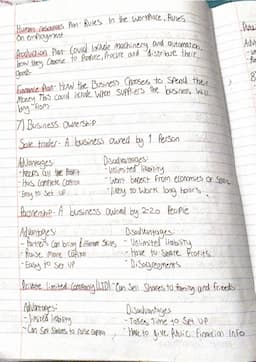 Human resources Plan- Rules In the workplace, Rules
On employment
Production Plan- Could Include machinery and automation,
how they choose to produce, Procure and distribute their
goods
Finance Plan- How the Business Chooses to Spend their
Money This could include what suppliers the business will
buy from
7) Business Ownership
Sole trader- A business owned by 1 Person
Advantages:
Disadvantages:
- Keeps all the Profit
- Unlimited liability
- Has complete control
- Won't benefit from economies of Scale
- Easy to Set UP
- Likely to work long hours
Partnership- A business owned by 2-20 People
Advantages:
Disadvantages:
- Partners can bring different Skills
- Unlimited liability
- Raise more Capital
- Have to Share Profits
- Easy to Set UP
- Disagreements
Private limited company (LTD)- Can Sell Shares to family and friends
Advantages:
Disadvantages
- limited liability
- Takes time to Set UP
- Can Sell Shares to raise capital
- Have to give Public Financial Info